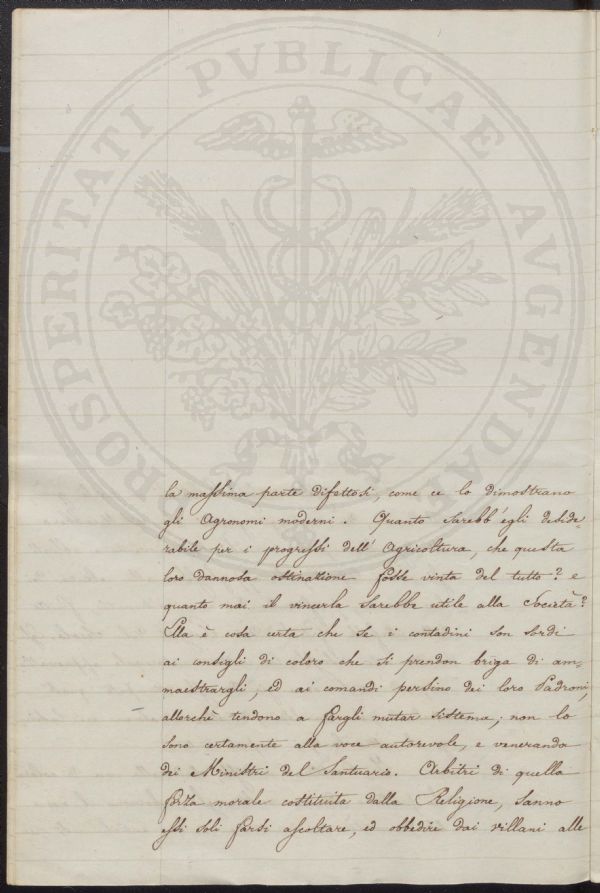 PROSPERITATI PVBLICAE AVGENDAE
la massima parte difettosi, come ce lo dimostrano
gli Agronomi moderni. Quanto sarebb'egli deside-
rabile per i progressi dell'Agricoltura, che questa
loro dannosa ostinazione fosse vinta del tutto? e
quanto mai il vincerla sarebbe utile alla Società?
Ella è cosa certa che se i contadini son sordi
ai consigli di coloro che si prendon briga di am-
maestrargli, ed ai comandi persino dei loro Padroni,
allorchè tendono a fargli mutar sistema; non lo
sono certamente alla voce autorevole, e veneranda
dei Ministri del Santuario. Arbitri di quella
forza morale costituita dalla Religione, sanno
essi soli farsi ascoltare, ed obbedire dai villani alle